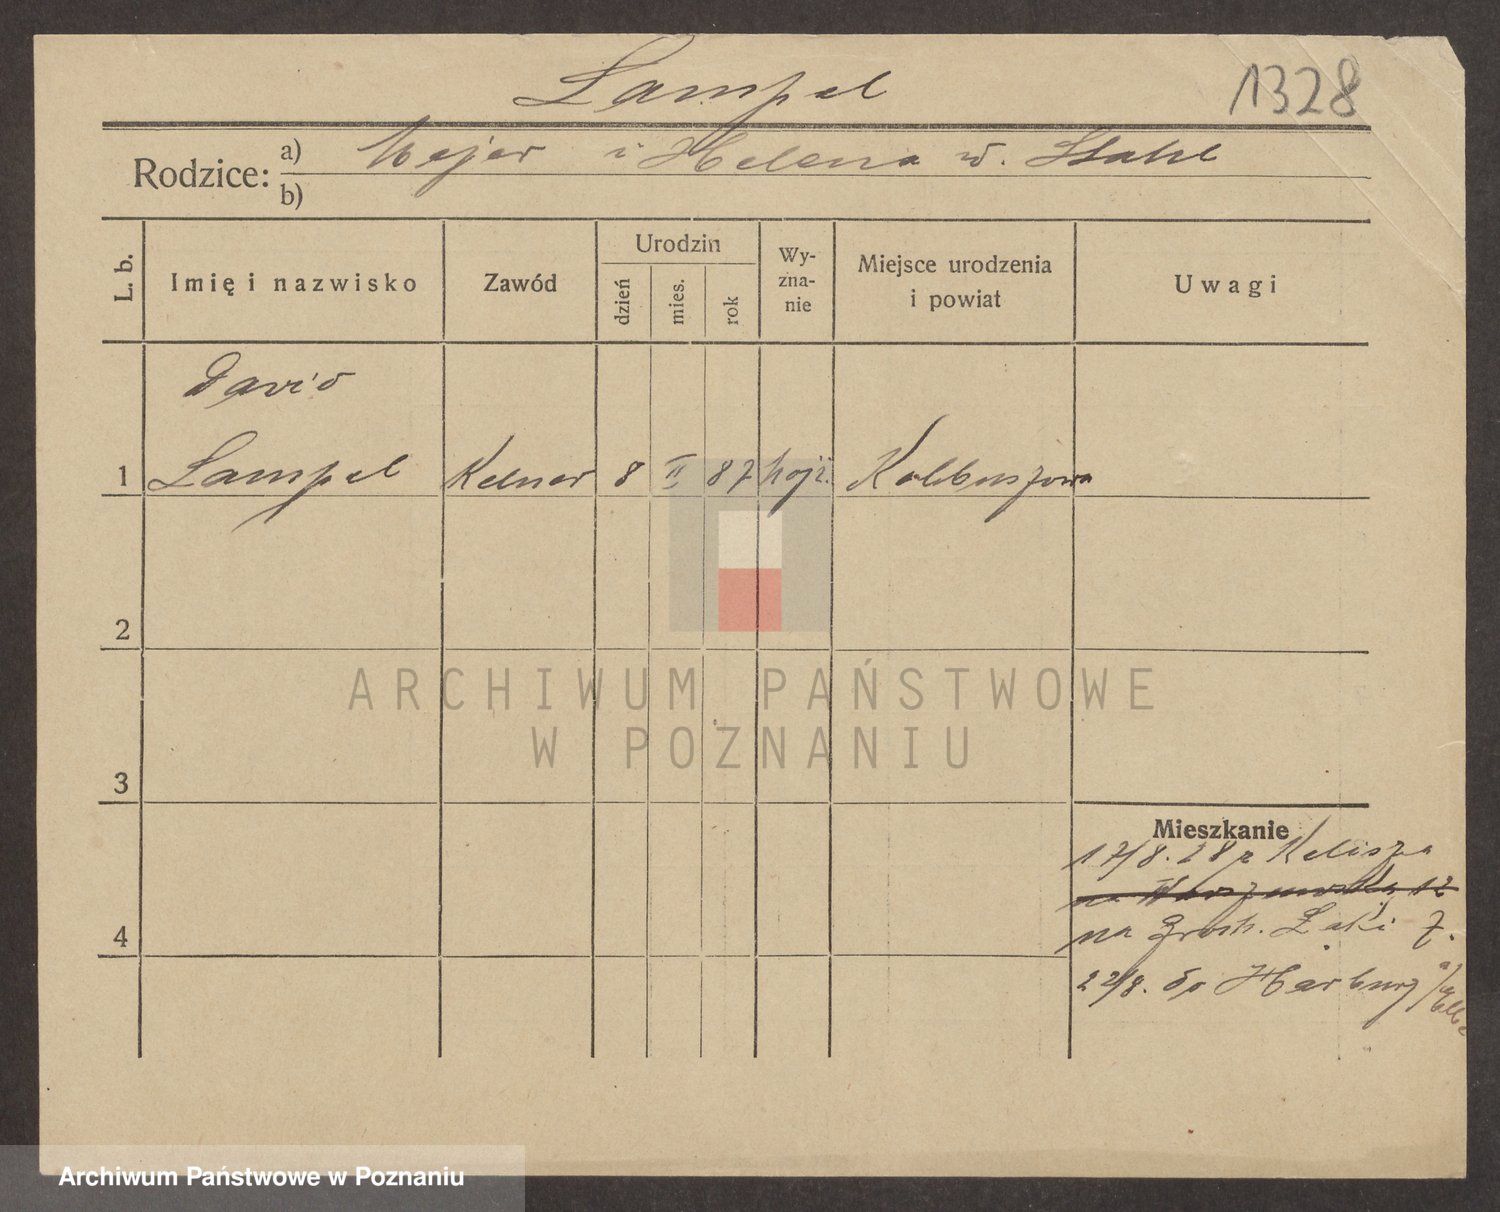 Lampel
1328
Rodzice: a) Majer i Helena w. Stahl
b)
L. b. Imię i nazwisko Zawód Urodzin dzień mies. rok Wy-zna-nie Miejsce urodzenia i powiat Uwagi
David
1 Lampel Kelner 8 II 87 mojż. Kolbuszowa
2
3
4
Mieszkanie
17/8. 28 z Kalisza
na Warszawską 12
na Grobl. Łąki 7.
22/8. do Harburg a/Elbe
ARCHIWUM PAŃSTWOWE
W POZNANIU
Archiwum Państwowe w Poznaniu